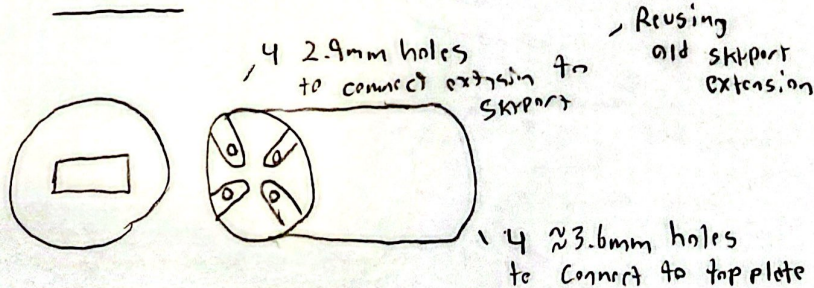 4 2.9mm holes
to connect extension to
skyport
Reusing
old skyport
extension
4 ≈3.6mm holes
to connect to top plate